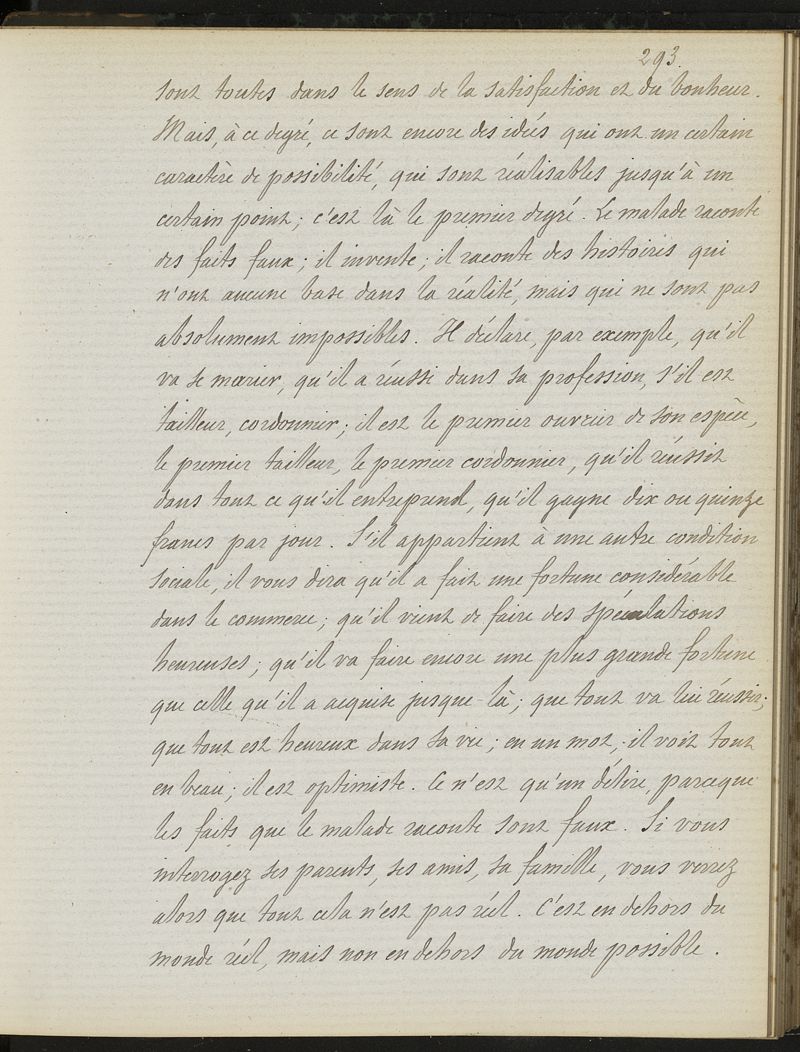 293.
sont toutes dans le sens de la satisfaction et du bonheur.
Mais, à ce degré, ce sont encore des idées qui ont un certain
caractère de possibilité, qui sont réalisables jusqu'à un
certain point; c'est là le premier degré. Le malade raconte
des faits faux; il invente; il raconte des histoires qui
n'ont aucune base dans la réalité, mais qui ne sont pas
absolument impossibles. Il déclare, par exemple, qu'il
va se marier, qu'il a réussi dans sa profession, s'il est
tailleur, cordonnier; il est le premier ouvrier de son espèce,
le premier tailleur, le premier cordonnier, qu'il réussit
dans tout ce qu'il entreprend, qu'il gagne dix ou quinze
francs par jour. S'il appartient à une autre condition
sociale, il vous dira qu'il a fait une fortune considérable
dans le commerce; qu'il vient de faire des spéculations
heureuses; qu'il va faire encore une plus grande fortune
que celle qu'il a acquise jusque-là; que tout va lui réussir;
que tout est heureux dans sa vie; en un mot, il voit tout
en beau; il est optimiste. Ce n'est qu'un délire, parceque
les faits que le malade raconte sont faux. Si vous
interrogez ses parents, ses amis, sa famille, vous verrez
alors que tout cela n'est pas réel. C'est en dehors du
monde réel, mais non en dehors du monde possible.